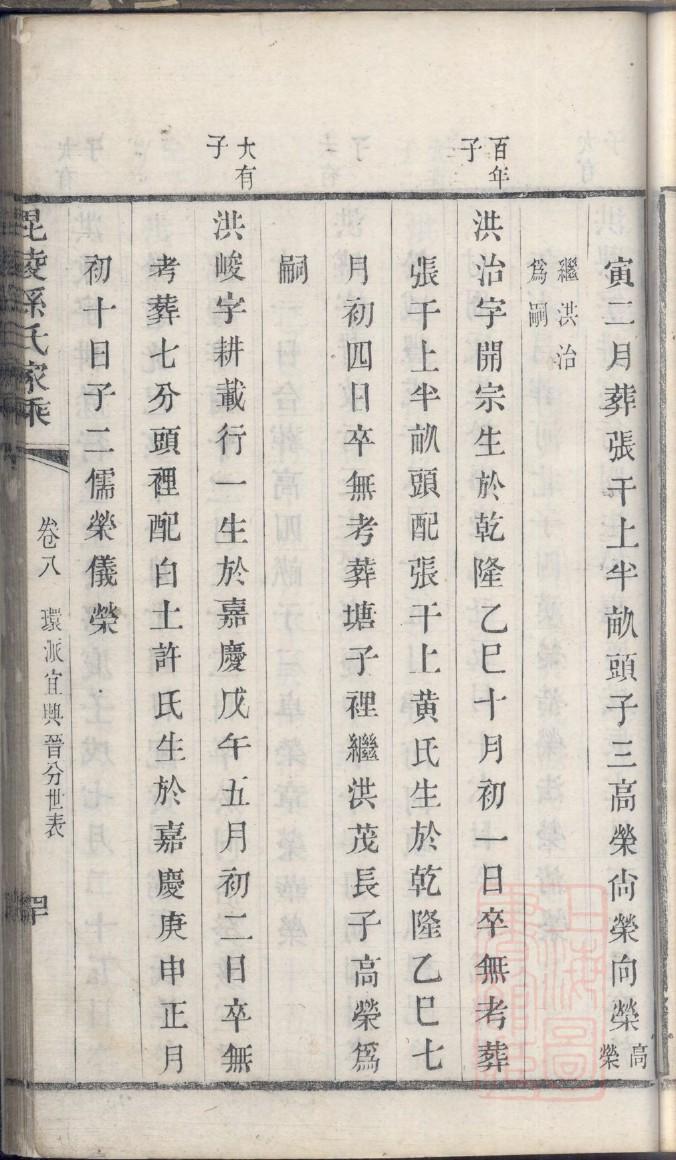 寅二月葬張干上半畝頭子三高榮尙榮向榮高榮
繼洪治
爲嗣
百年
子
洪治字開宗生於乾隆乙巳十月初一日卒無考葬
張干上半畝頭配張干上黄氏生於乾隆乙巳七
月初四日卒無考葬塘子裡繼洪茂長子高榮爲
嗣
大有
子
洪峻字耕載行一生於嘉慶戊午五月初二日卒無
考葬七分頭裡配白土許氏生於嘉慶庚申正月
初十日子二儒榮儀榮
毘陵孫氏家乘
卷八 環派宜興晉分世表